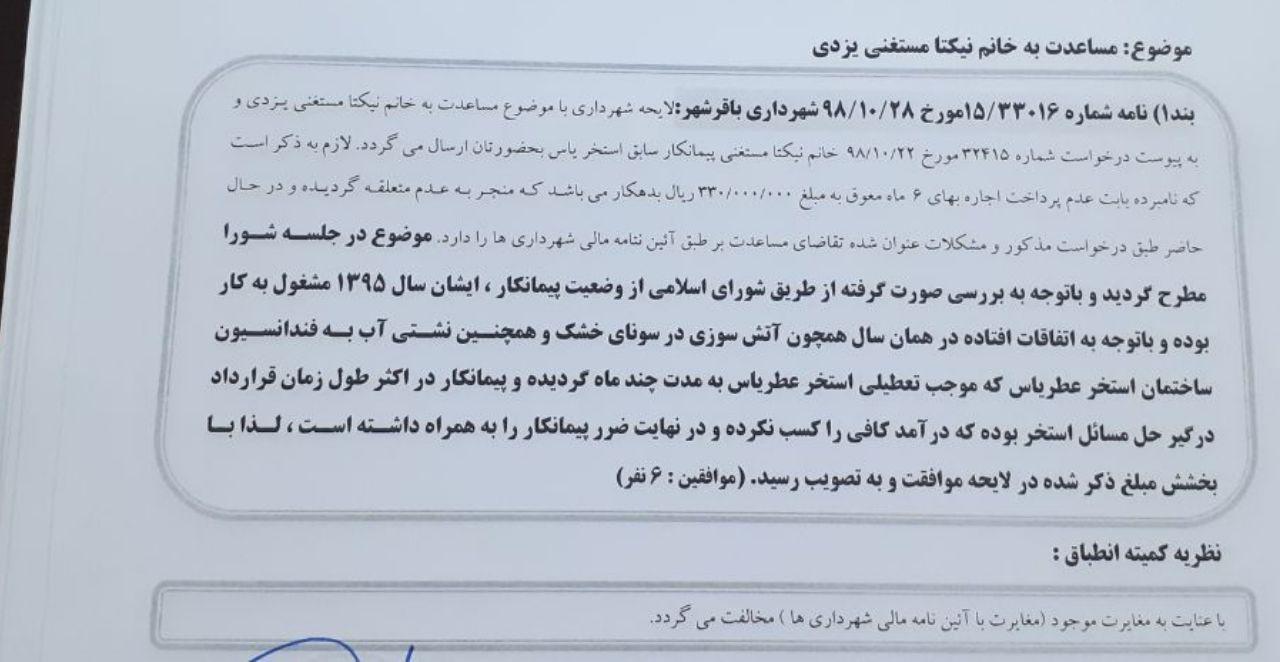 موضوع: مساعدت به خانم نیکتا مستغنی یزدی
بند۱) نامه شماره ۱۵/۳۳۰۱۶مورخ ۹۸/۱۰/۲۸ شهرداری باقرشهر:لایحه شهرداری با موضوع مساعدت به خانم نیکتا مستغنی یزدی و
به پیوست درخواست شماره ۳۲۴۱۵ مورخ ۹۸/۱۰/۲۲ خانم نیکتا مستغنی پیمانکار سابق استخر یاس بحضورتان ارسال می گردد. لازم به ذکر است
که نامبرده بابت عدم پرداخت اجاره بهای ۶ ماه معوق به مبلغ ۳۳۰/۰۰۰/۰۰۰ ریال بدهکار می باشد که منجر به عدم متعلقه گردیده و در حال
حاضر طبق درخواست مذکور و مشکلات عنوان شده تقاضای مساعدت بر طبق آئین ننامه مالی شهرداری ها را دارد. موضوع در جلسه شورا
مطرح گردید و باتوجه به بررسی صورت گرفته از طریق شورای اسلامی از وضعیت پیمانکار ، ایشان سال ۱۳۹۵ مشغول به کار
بوده و باتوجه به اتفاقات افتاده در همان سال همچون آتش سوزی در سونای خشک و همچنین نشتی آب به فندانسیون
ساختمان استخر عطریاس که موجب تعطیلی استخر عطریاس به مدت چند ماه گردیده و پیمانکار در اکثر طول زمان قرارداد
درگیر حل مسائل استخر بوده که درآمد کافی را کسب نکرده و در نهایت ضرر پیمانکار را به همراه داشته است ، لذا با
بخشش مبلغ ذکر شده در لایحه موافقت و به تصویب رسید. (موافقین : ۶ نفر)
نظریه کمیته انطباق :
با عنایت به مغایرت موجود (مغایرت با آئین نامه مالی شهرداری ها ) مخالفت می گردد.